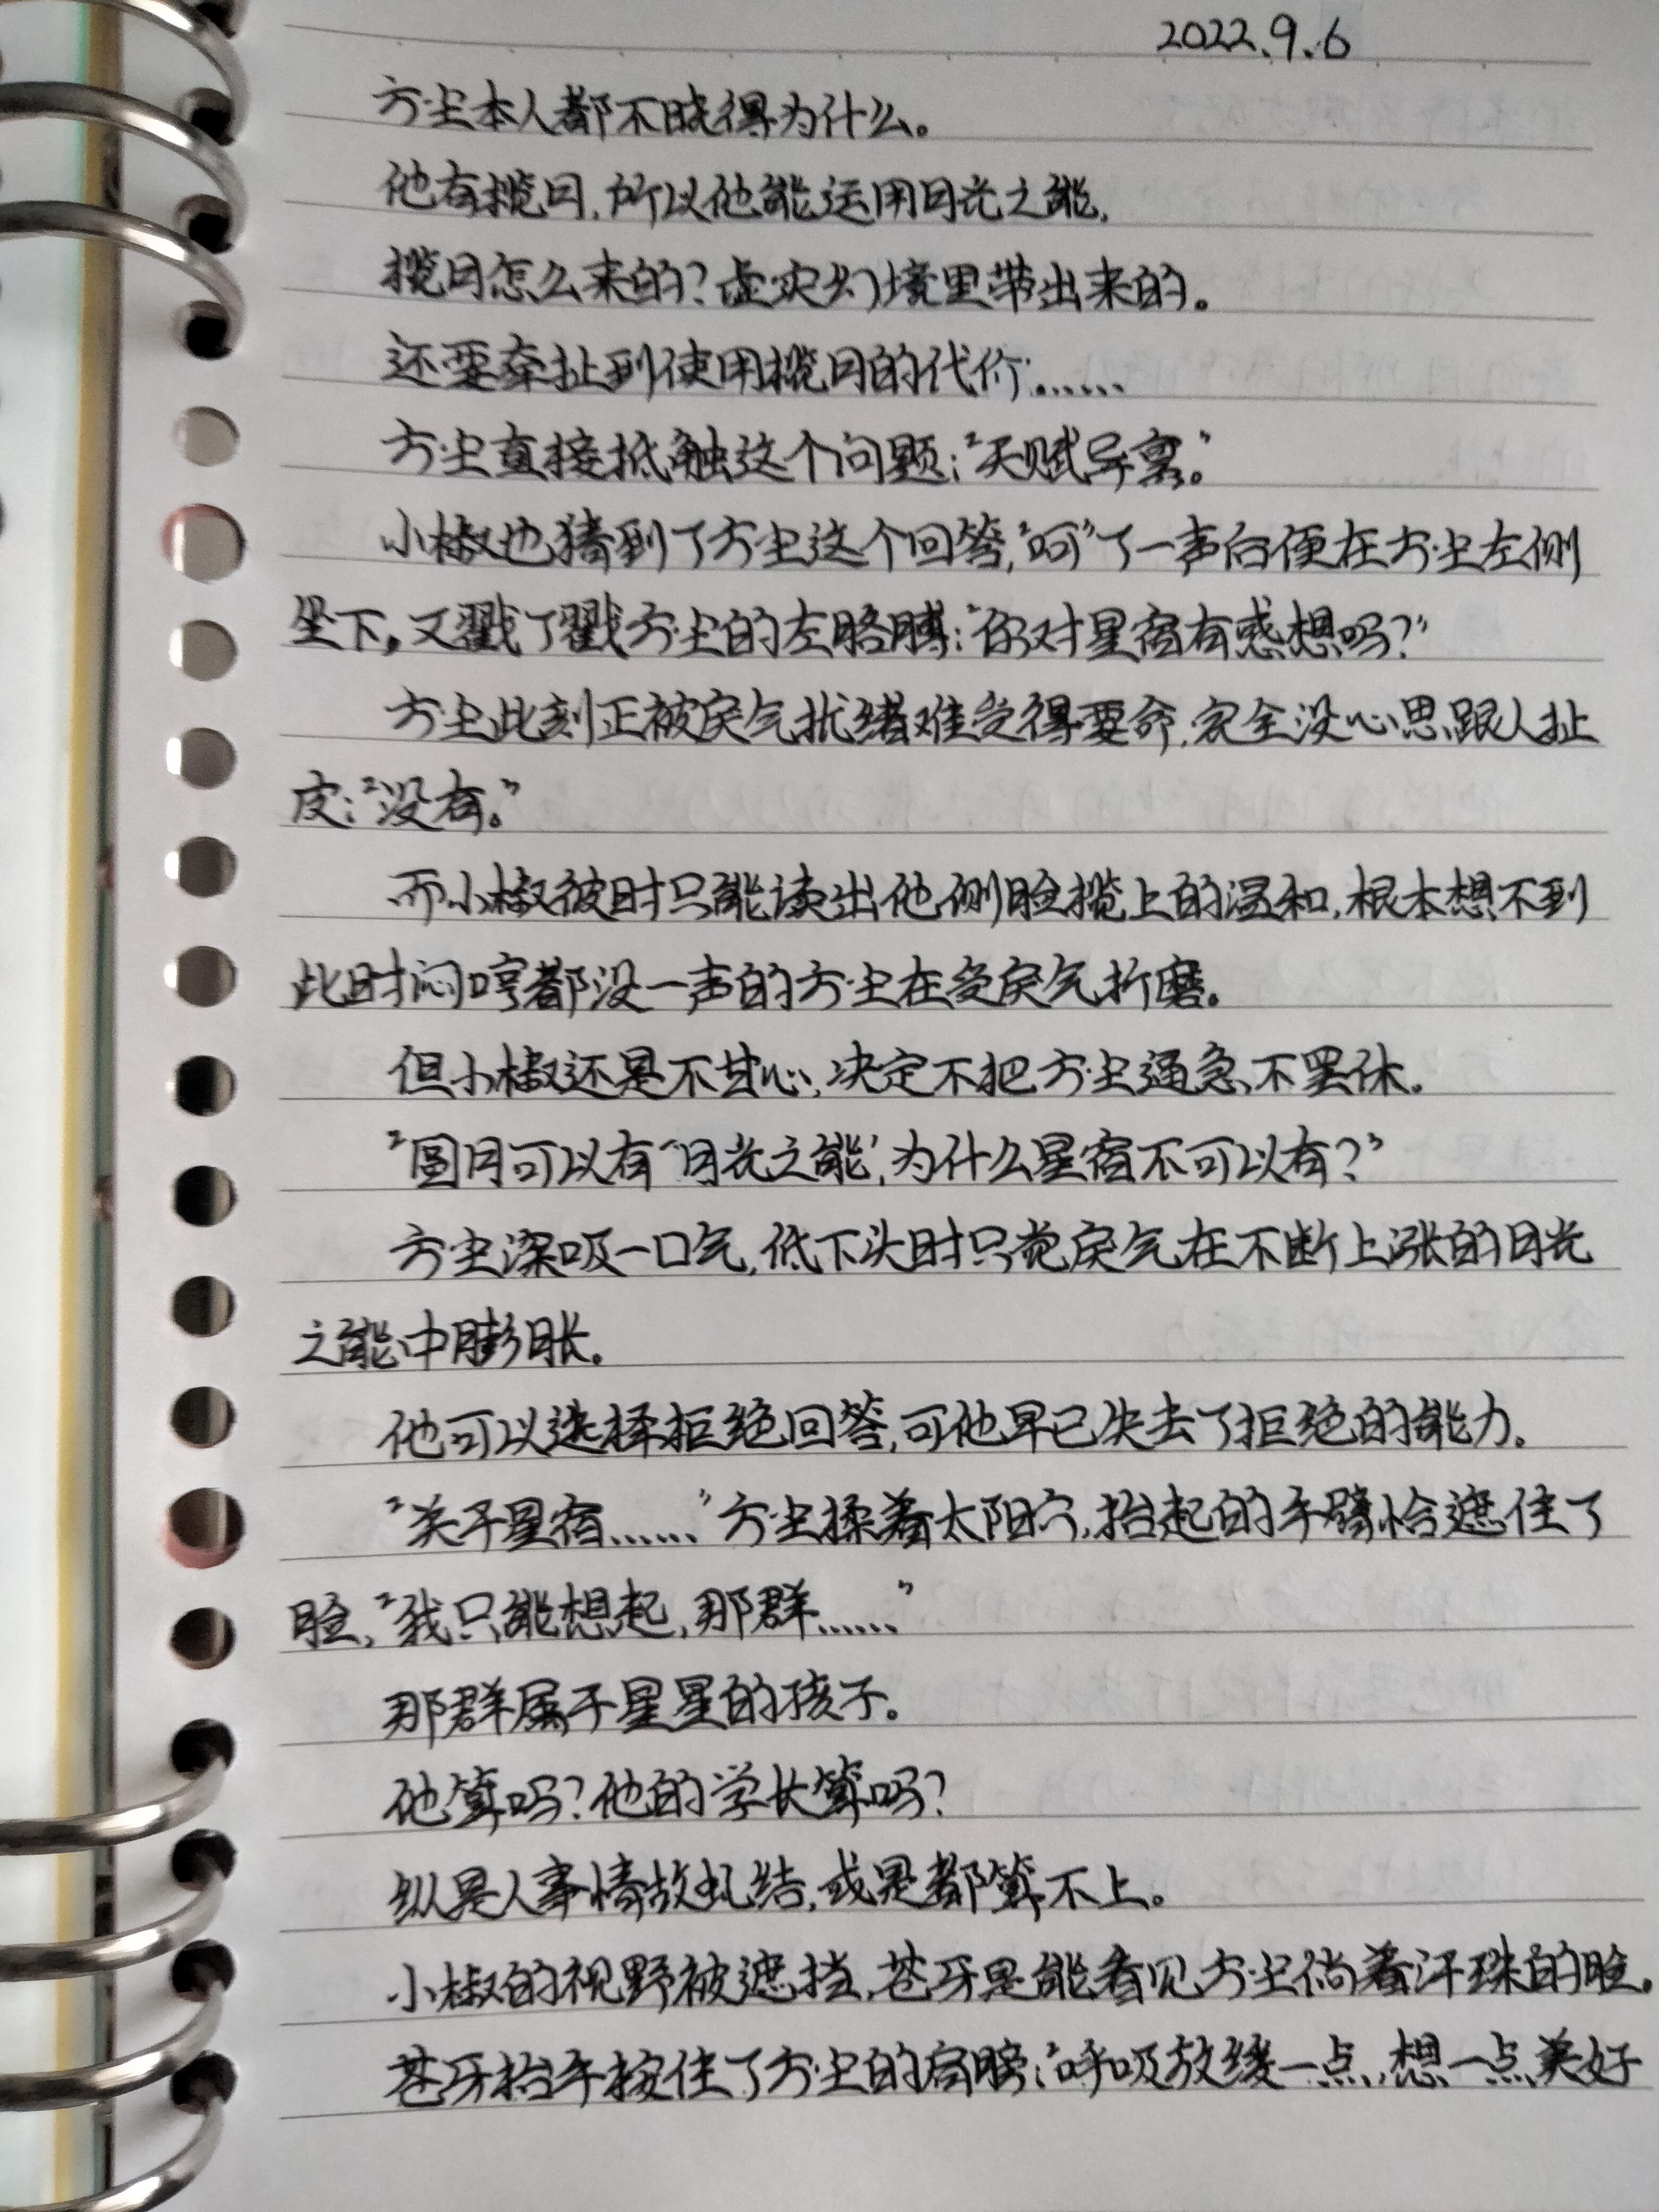 2022.9.6
方尘本人都不晓得为什么。
他有揽月,所以他能运用月光之能,
揽月怎么来的?虚灾幻境里带出来的。
还要牵扯到使用揽月的代价……
方尘直接抵触这个问题:“天赋异禀。”
小椒也猜到了方尘这个回答,“呵”了一声后便在方尘左侧
坐下,又戳了戳方尘的左胳膊:“你对星宿有感想吗?”
方尘此刻正被戾气扰绪难受得要命,完全没心思跟人扯
皮:“没有。”
而小椒彼时只能读出他侧脸揽上的温和,根本想不到
此时闷哼都没一声的方尘在受戾气折磨。
但小椒还是不甘心,决定不把方尘逼急不罢休。
“圆月可以有‘月光之能’,为什么星宿不可以有?”
方尘深吸一口气,低下头时只觉戾气在不断上涨的月光
之能中膨胀。
他可以选择拒绝回答,可他早已失去了拒绝的能力。
“关于星宿……”方尘揉着太阳穴,抬起的手臂恰遮住了
脸,“我只能想起,那群……”
那群属于星星的孩子。
他算吗?他的学长算吗?
纵是人事情故虬结,或是都算不上。
小椒的视野被遮挡,苍牙是能看见方尘淌着汗珠的脸。
苍牙抬手按住了方尘的肩膀:“呼吸放缓一点,想一点美好